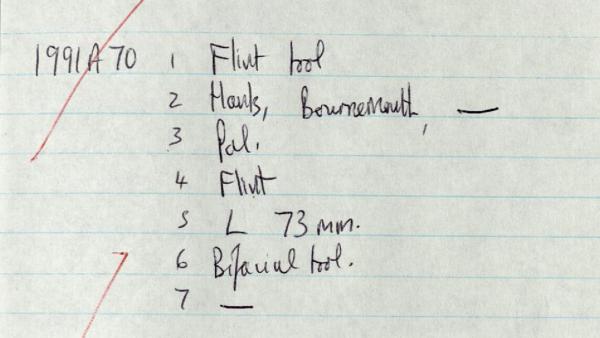 1991A70 1 Flint tool
2 Hants, Bournemouth, —
3 Pal.
4 Flint
5 L 73 mm.
6 Bifacial tool.
7 —